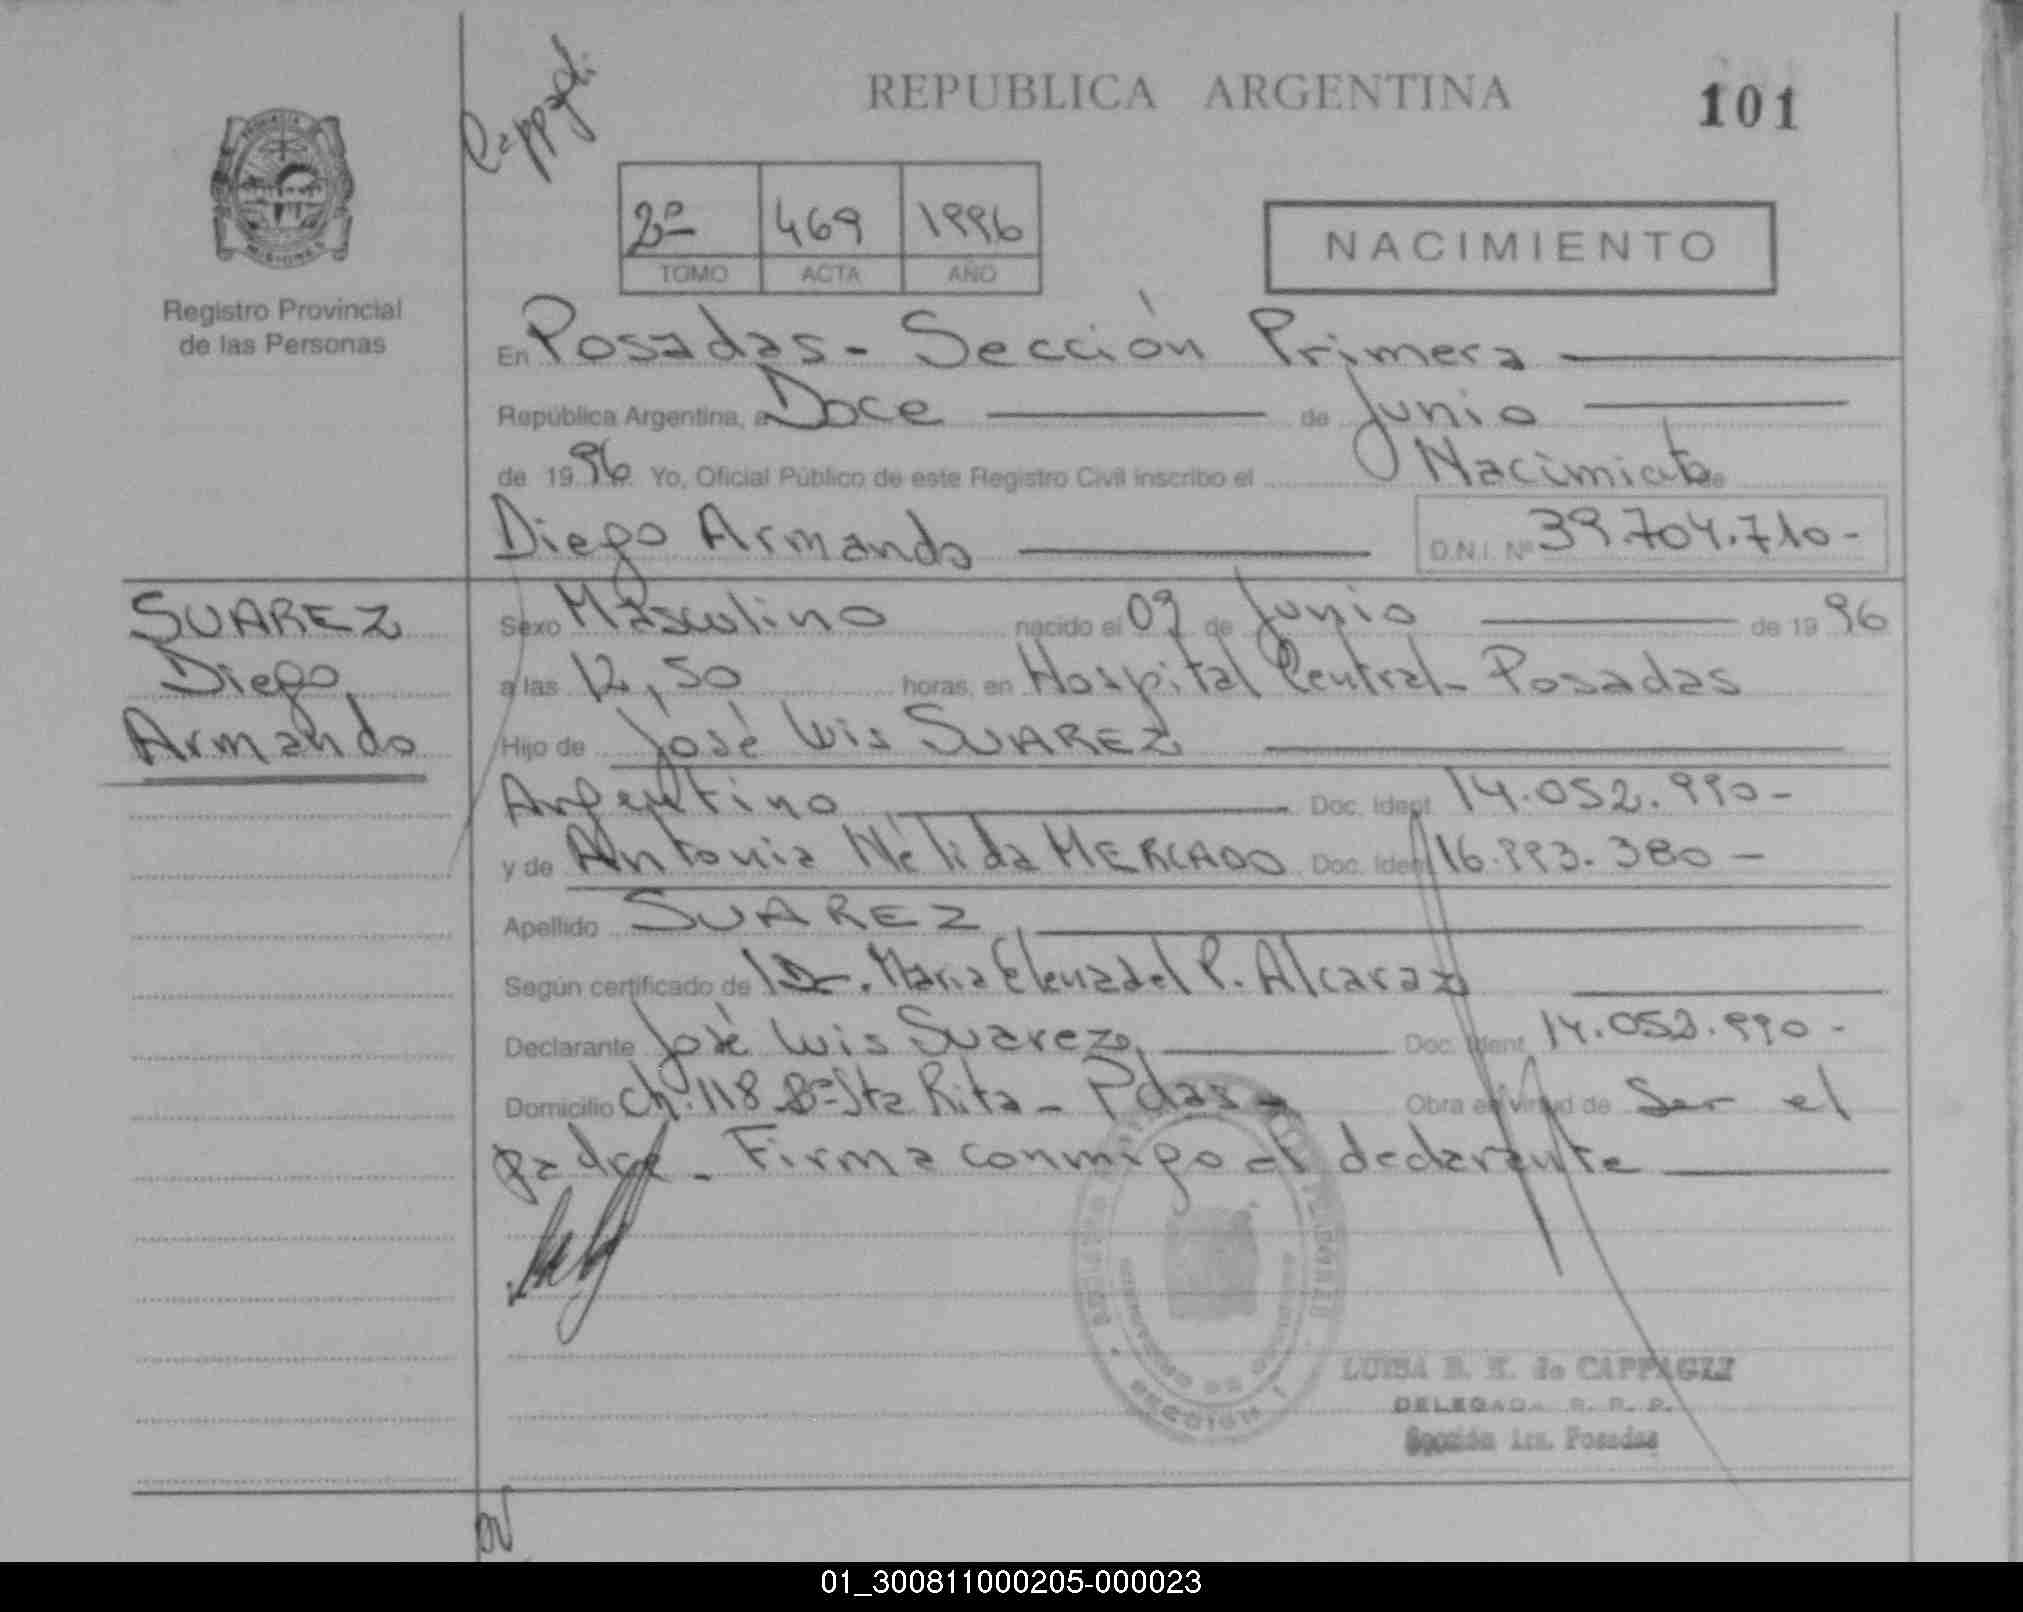 Cappagli
REPUBLICA ARGENTINA
101
2º 469 1996
TOMO ACTA AÑO
NACIMIENTO
Registro Provincial
de las Personas
En Posadas - Sección Primera
República Argentina, a Doce de Junio
de 1996 Yo, Oficial Público de este Registro Civil inscribo el Nacimiento de
Diego Armando D.N.I. Nº 39.704.710-
SUAREZ
Diego
Armando
Sexo Masculino nacido el 09 de Junio de 1996
a las 12,50 horas, en Hospital Central - Posadas
Hijo de José Luis SUAREZ
Argentino Doc. Ident. 14.052.990-
y de Antonia Nélida MERCADO Doc. Ident. 16.993.380-
Apellido SUAREZ
Según certificado de Maria Elena del P. Alcaraz
Declarante José Luis Suarez Doc. Ident. 14.052.990-
Domicilio Ch. 118 Bº Sta Rita - Pdas - Obra en virtud de Ser el
padre - Firma conmigo el declarante
LUISA B. K. de CAPPAGLI
DELEGADA R. P. P.
Sección 1ra. Posadas
01_300811000205-000023